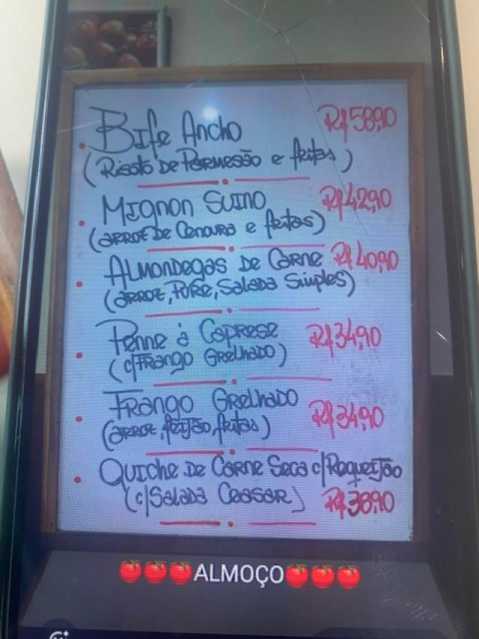 Bife Ancho R$58,90
(Risoto de Parmesão e fritas)
Mignon Suino R$42,90
(arroz de Cenoura e fritas)
Almondegas de Carne R$40,90
(arroz, Purê, Salada Simples)
Penne à Caprese R$34,90
(c/Frango Grelhado)
Frango Grelhado R$34,90
(arroz, feijão, fritas)
Quiche de Carne Seca c/Requeijão
(c/Salada Ceasar) R$38,90
🍅🍅🍅ALMOÇO🍅🍅🍅